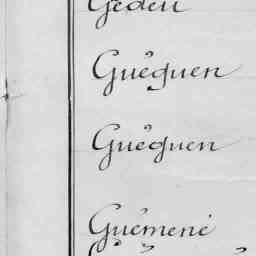 Gédeu
Guéguen
Guéguen
Guémené